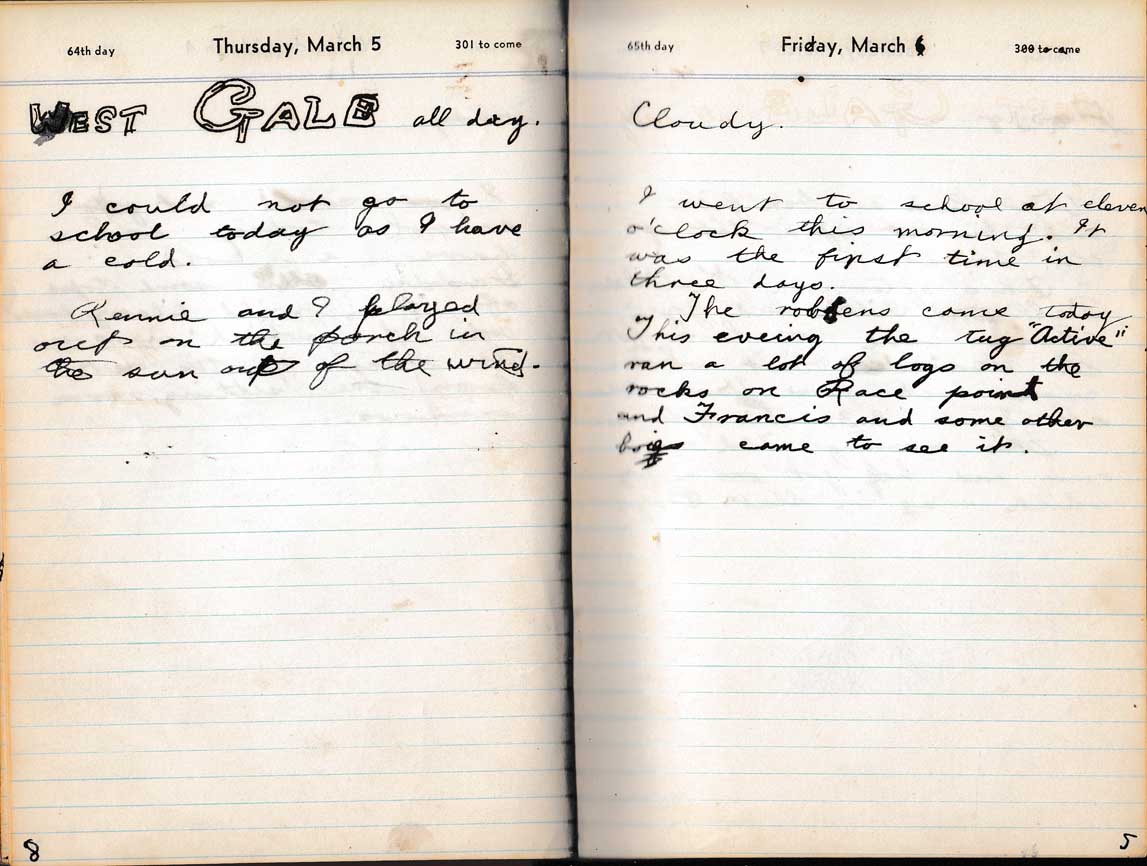 64th day Thursday, March 5 301 to come
WEST GALE all day.
I could not go to
school today as I have
a cold.
Rennie and I played
out on the porch in
the sun out of the wind.
8
65th day Friday, March 6 300 to come
Cloudy.
I went to school at eleven
o'clock this morning. It
was the first time in
three days.
The robbens came today
This eveing the tug "Active"
ran a lot of logs on the
rocks on Race point
and Francis and some other
boys came to see it.
5